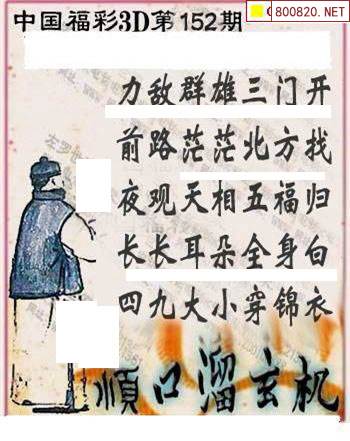 800820.NET
中国福彩3D第152期
力敌群雄三门开
前路茫茫北方找
夜观天相五福归
长长耳朵全身白
四九大小穿锦衣
顺口溜玄机